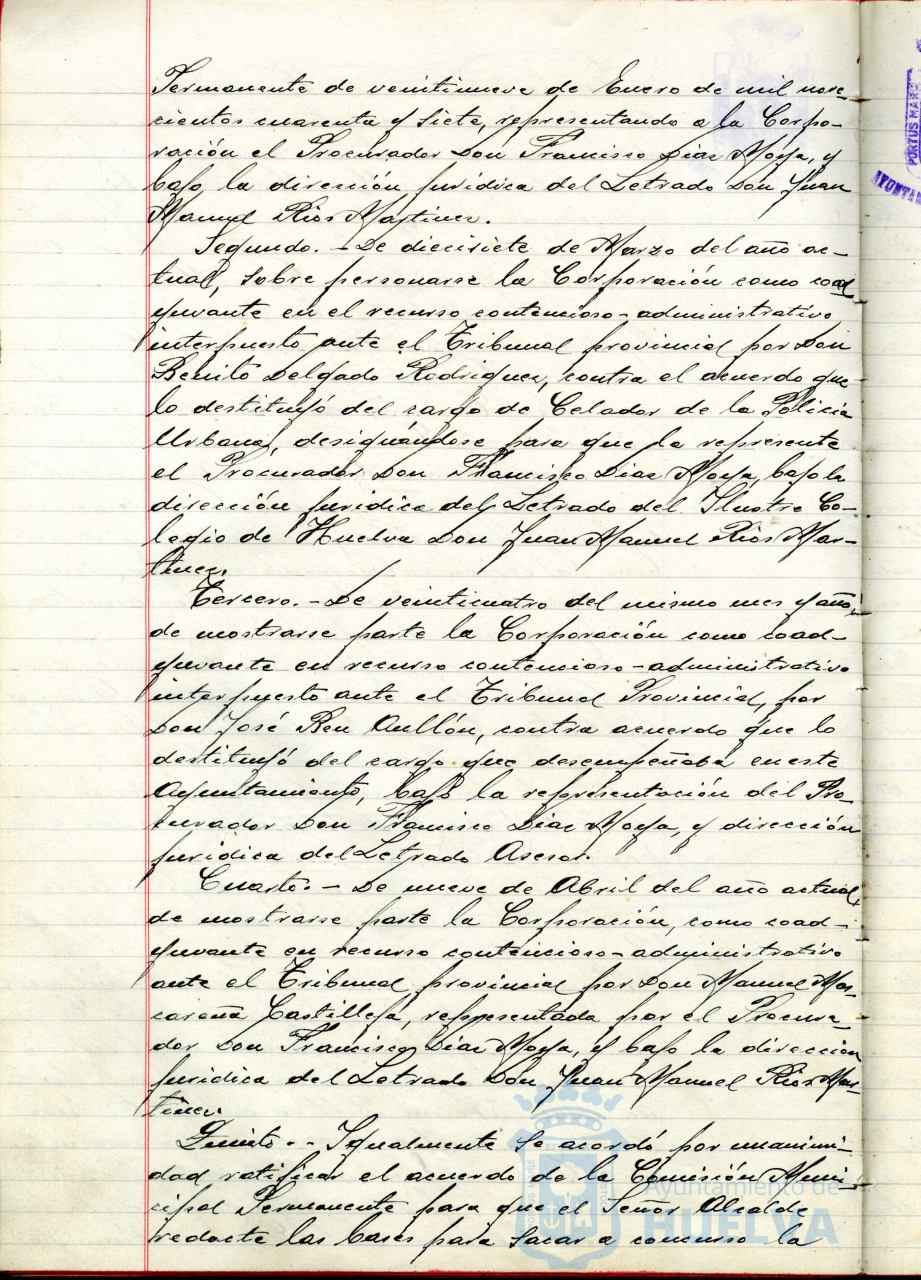 Permanente de veintinueve de Enero de mil nove-
cientos cuarenta y siete, representando a la Corpo-
ración el Procurador Don Francisco Díaz Moya, y
bajo la dirección jurídica del Letrado Don Juan
Manuel Ríos Martínez.
Segundo. - De diecisiete de Marzo del año ac-
tual, sobre personarse la Corporación como coad-
yuvante en el recurso contencioso-administrativo
interpuesto ante el Tribunal provincial por Don
Benito Delgado Rodriguez, contra el acuerdo que
lo destituyó del cargo de Celador de la Policía
Urbana, designándose para que la represente
el Procurador Don Francisco Díaz Moya, bajo la
dirección jurídica del Letrado del Ilustre Co-
legio de Huelva Don Juan Manuel Ríos Mar-
tínez.
Tercero. - De veinticuatro del mismo mes y año,
de mostrarse parte la Corporación como coad-
yuvante en recurso contencioso-administrativo
interpuesto ante el Tribunal Provincial, por
Don José Rey Aullón, contra acuerdo que lo
destituyó del cargo que desempeñaba en este
Ayuntamiento, bajo la representación del Pro-
curador Don Francisco Díaz Moya, y dirección
jurídica del Letrado Asesor.
Cuarto. - De nueve de Abril del año actual,
de mostrarse parte la Corporación, como coad-
yuvante en recurso contencioso-administrativo
ante el Tribunal provincial por Don Manuel Ma-
careña Castilleja, representada por el Procura-
dor Don Francisco Díaz Moya, y bajo la dirección
jurídica del Letrado Don Juan Manuel Ríos Mar-
tínez.
Quinto. - Igualmente se acordó por unanimi-
dad ratificar el acuerdo de la Comisión Muni-
cipal Permanente para que el Señor Alcalde
redacte las bases para sacar a concurso la
Ayuntamiento de
HUELVA
PORTUS MAR
AYUNTA